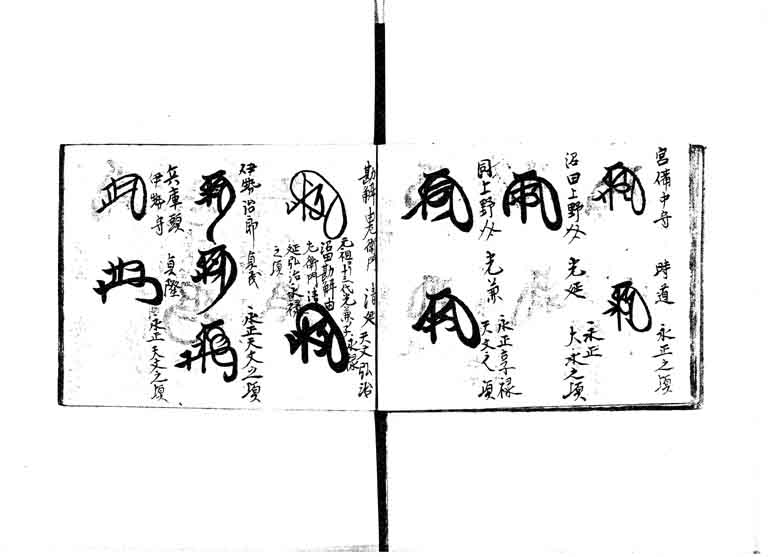 宮備中守 時道 永正之頃
沼田上野介 光延 永正
大永之頃
同上野介 光兼 永正享禄
天文之頃
勘解由左衛門 清延 天文弘治
永禄
元祖十三代光兼
沼田勘解由
左衛門清
延弘治永禄
之頃
伊勢治郎 貞 永正天文之頃
兵庫頭
伊勢守 貞陸 永正天文之頃